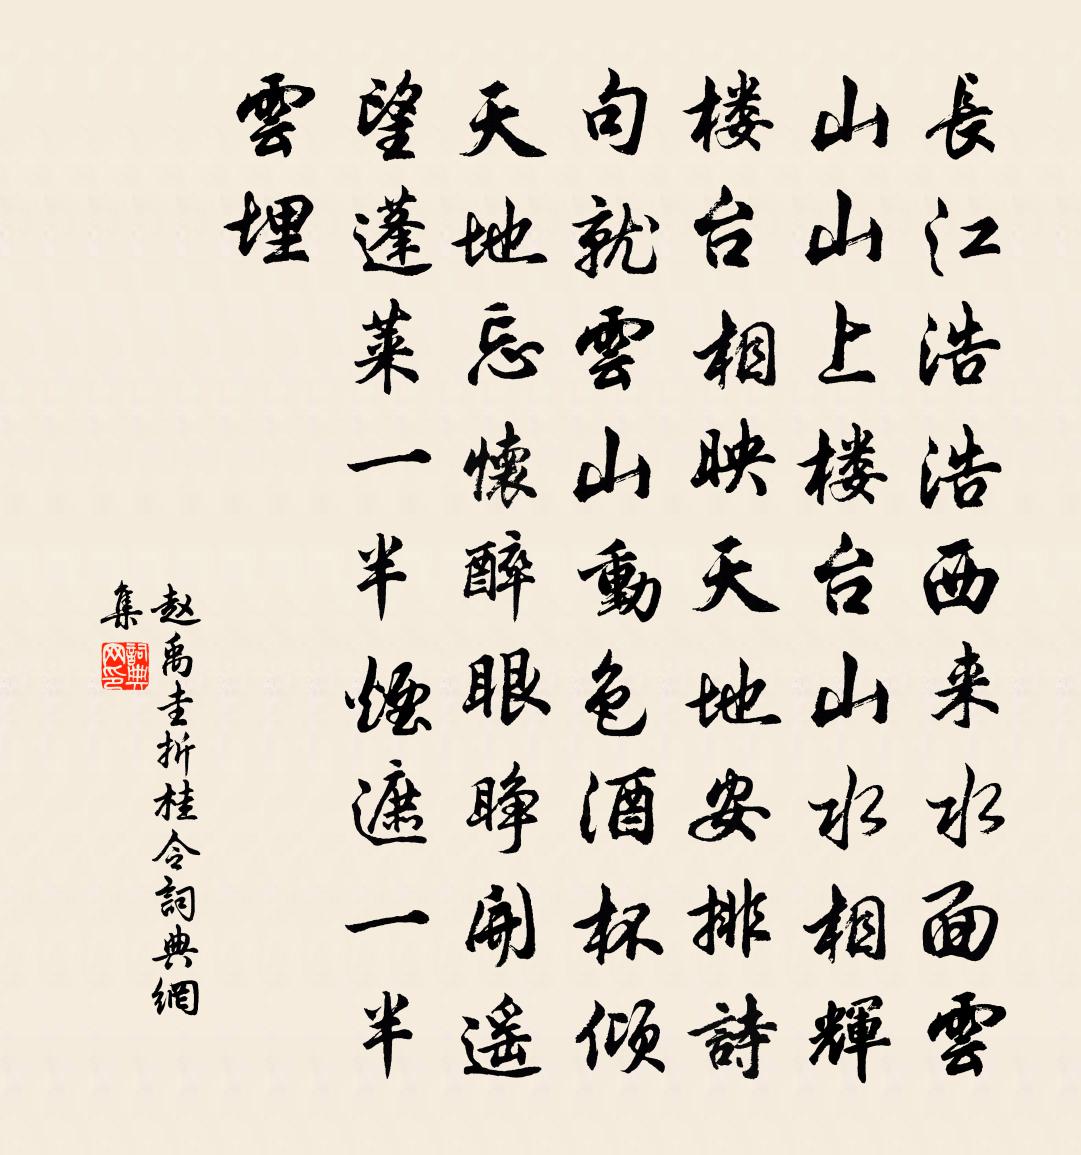 長江浩浩西来水面雲
山山上楼台山水相輝
楼台相映天地安排詩
句就雲山動色酒杯傾
天地忘懷醉眼睜開遥
望蓬萊一半煙遮一半
雲埋
赵禹圭折桂令詞典網
集
詞典
网印